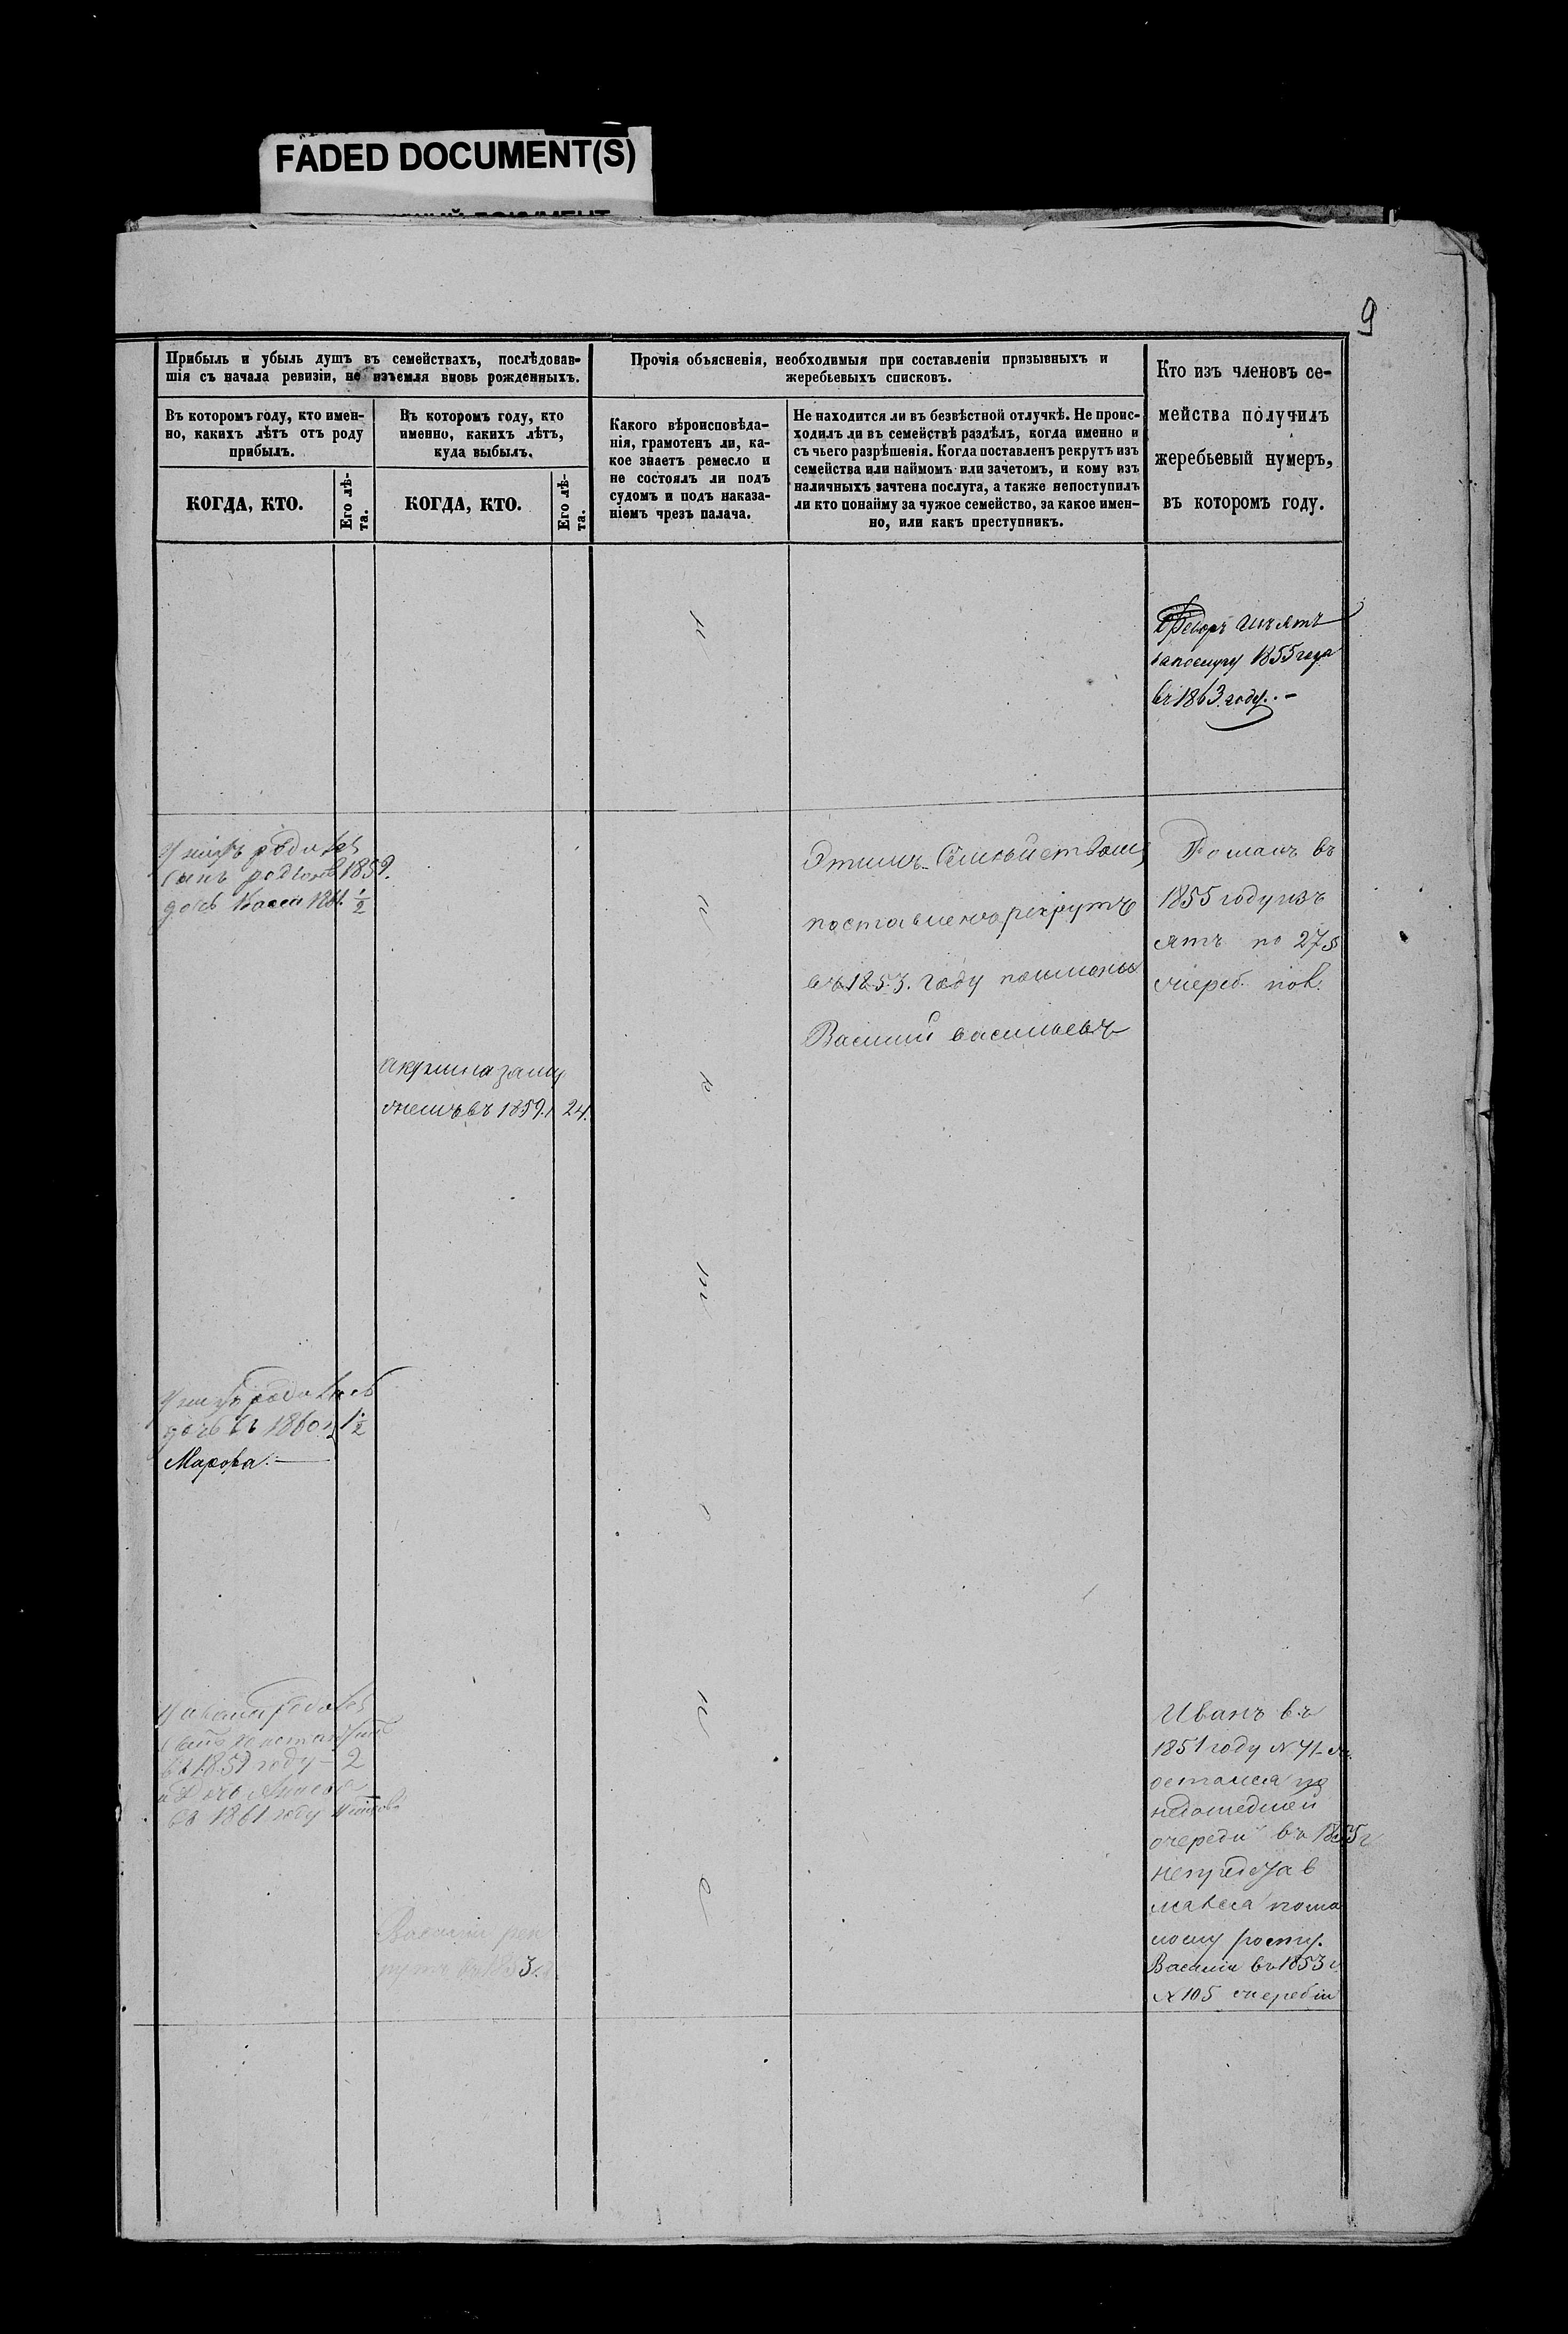 FADED DOCUMENT(S)
9
Прибыль и убыль душъ въ семействахъ, послѣдовав-
шія съ начала ревизіи, не изъемля вновь рожденныхъ.
Въ которомъ году, кто имен-
но, какихъ лѣтъ отъ роду
прибылъ.
КОГДА, КТО.
Его лѣ-
та.
Въ которомъ году, кто
именно, какихъ лѣтъ,
куда выбылъ.
КОГДА, КТО.
Его лѣ-
та.
Прочія объясненія, необходимыя при составленіи призывныхъ и
жеребьевыхъ списковъ.
Какого вѣроисповѣда-
нія, грамотенъ ли, ка-
кое знаетъ ремесло и
не состоялъ ли подъ
судомъ и подъ наказа-
ніемъ чрезъ палача.
Не находится ли въ безвѣстной отлучкѣ. Не проис-
ходилъ ли въ семействѣ раздѣлъ, когда именно и
съ чьего разрѣшенія. Когда поставленъ рекрутъ изъ
семейства или наймомъ или зачетомъ, и кому изъ
наличныхъ зачтена послуга, а также непоступилъ
ли кто понайму за чужое семейство, за какое имен-
но, или какъ преступникъ.
Кто изъ членовъ се-
мейства получилъ
жеребьевый нумеръ,
въ которомъ году.
1855 года
въ 1863 году. -
У нихъ
сынъ 1859.
дочь 1861. 1/2
Этимъ Семействомъ
поставлено рекрутъ
въ 1853. году
Василий васильевъ
Романъ въ
1855 году изъ
ятъ по 27 §
жереб. пол.
акулина заму
жемъ въ 1859. 24.
У нихъ родилась
дочь въ 1860 1/2
Марѳва. -
родился
въ 1859 году - 2
и дочь
въ 1861 году
Василий рек
рутъ въ 1853
Иванъ въ
1851 году № 71
остался за
недошедшей
очереди въ 1855 г
непредста в
лялся пома
лому росту.
Василий въ 1853 г.
№ 105 жеребій